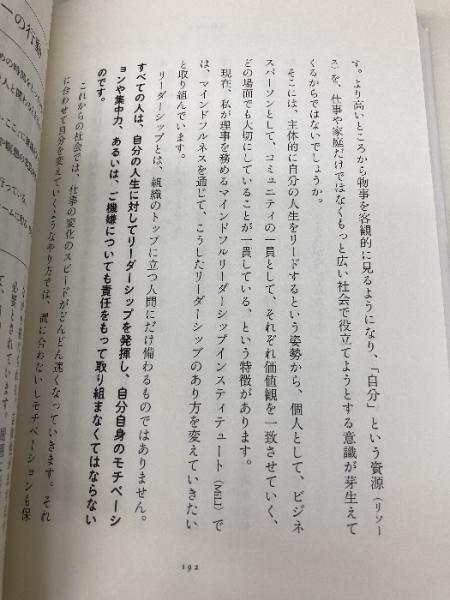 す。より高いところから物事を客観的に見るようになり、「自分」という資源（リソー
ス）を、仕事や家庭だけではなくもっと広い社会で役立てようとする意識が芽生えて
くるからではないでしょうか。
そこには、主体的に自分の人生をリードするという姿勢から、個人として、ビジネ
スパーソンとして、コミュニティの一員として、それぞれ価値観を一致させていく、
どの場面でも大切にしていることが一貫している、という特徴があります。
現在、私が理事を務めるマインドフルリーダーシップインスティテュート（MiLI）で
は、マインドフルネスを通じて、こうしたリーダーシップのあり方を変えていきたい
と取り組んでいます。
リーダーシップとは、組織のトップに立つ人間にだけ備わるものではありません。
すべての人は、自分の人生に対してリーダーシップを発揮し、自分自身のモチベーシ
ョンや集中力、あるいは、ご機嫌についても責任をもって取り組まなくてはならない
のです。
これからの社会では、仕事の変化のスピードがどんどん速くなっていきます。それ
に合わせて自分を変えていくようなやり方では、間に合わないしモチベーションも保
192
ーの行動
必要とされています。